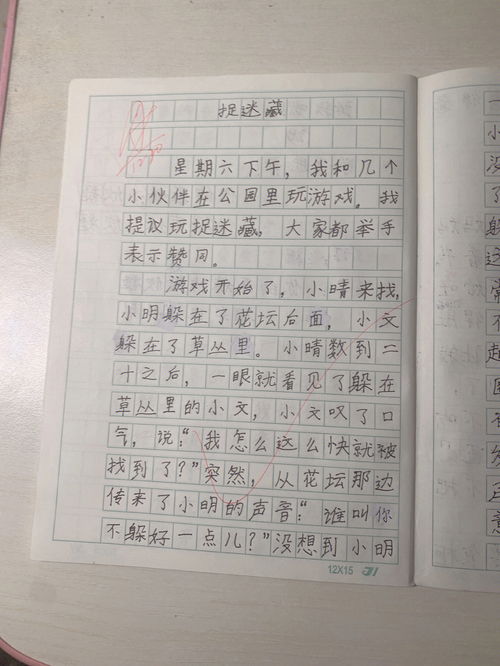 捉迷藏
星期六下午，我和几个
小伙伴在公园里玩游戏。我
提议玩捉迷藏，大家都举手
表示赞同。
游戏开始了，小晴来找，
小明躲在了花坛后面，小文
躲在了草丛里。小晴数到二
十之后，一眼就看见了躲在
草丛里的小文，小文叹了口
气，说：“我怎么这么快就被
找到了？”突然，从花坛那边
传来了小明的声音：“谁叫你
不躲好一点儿？”没想到小明
12X15